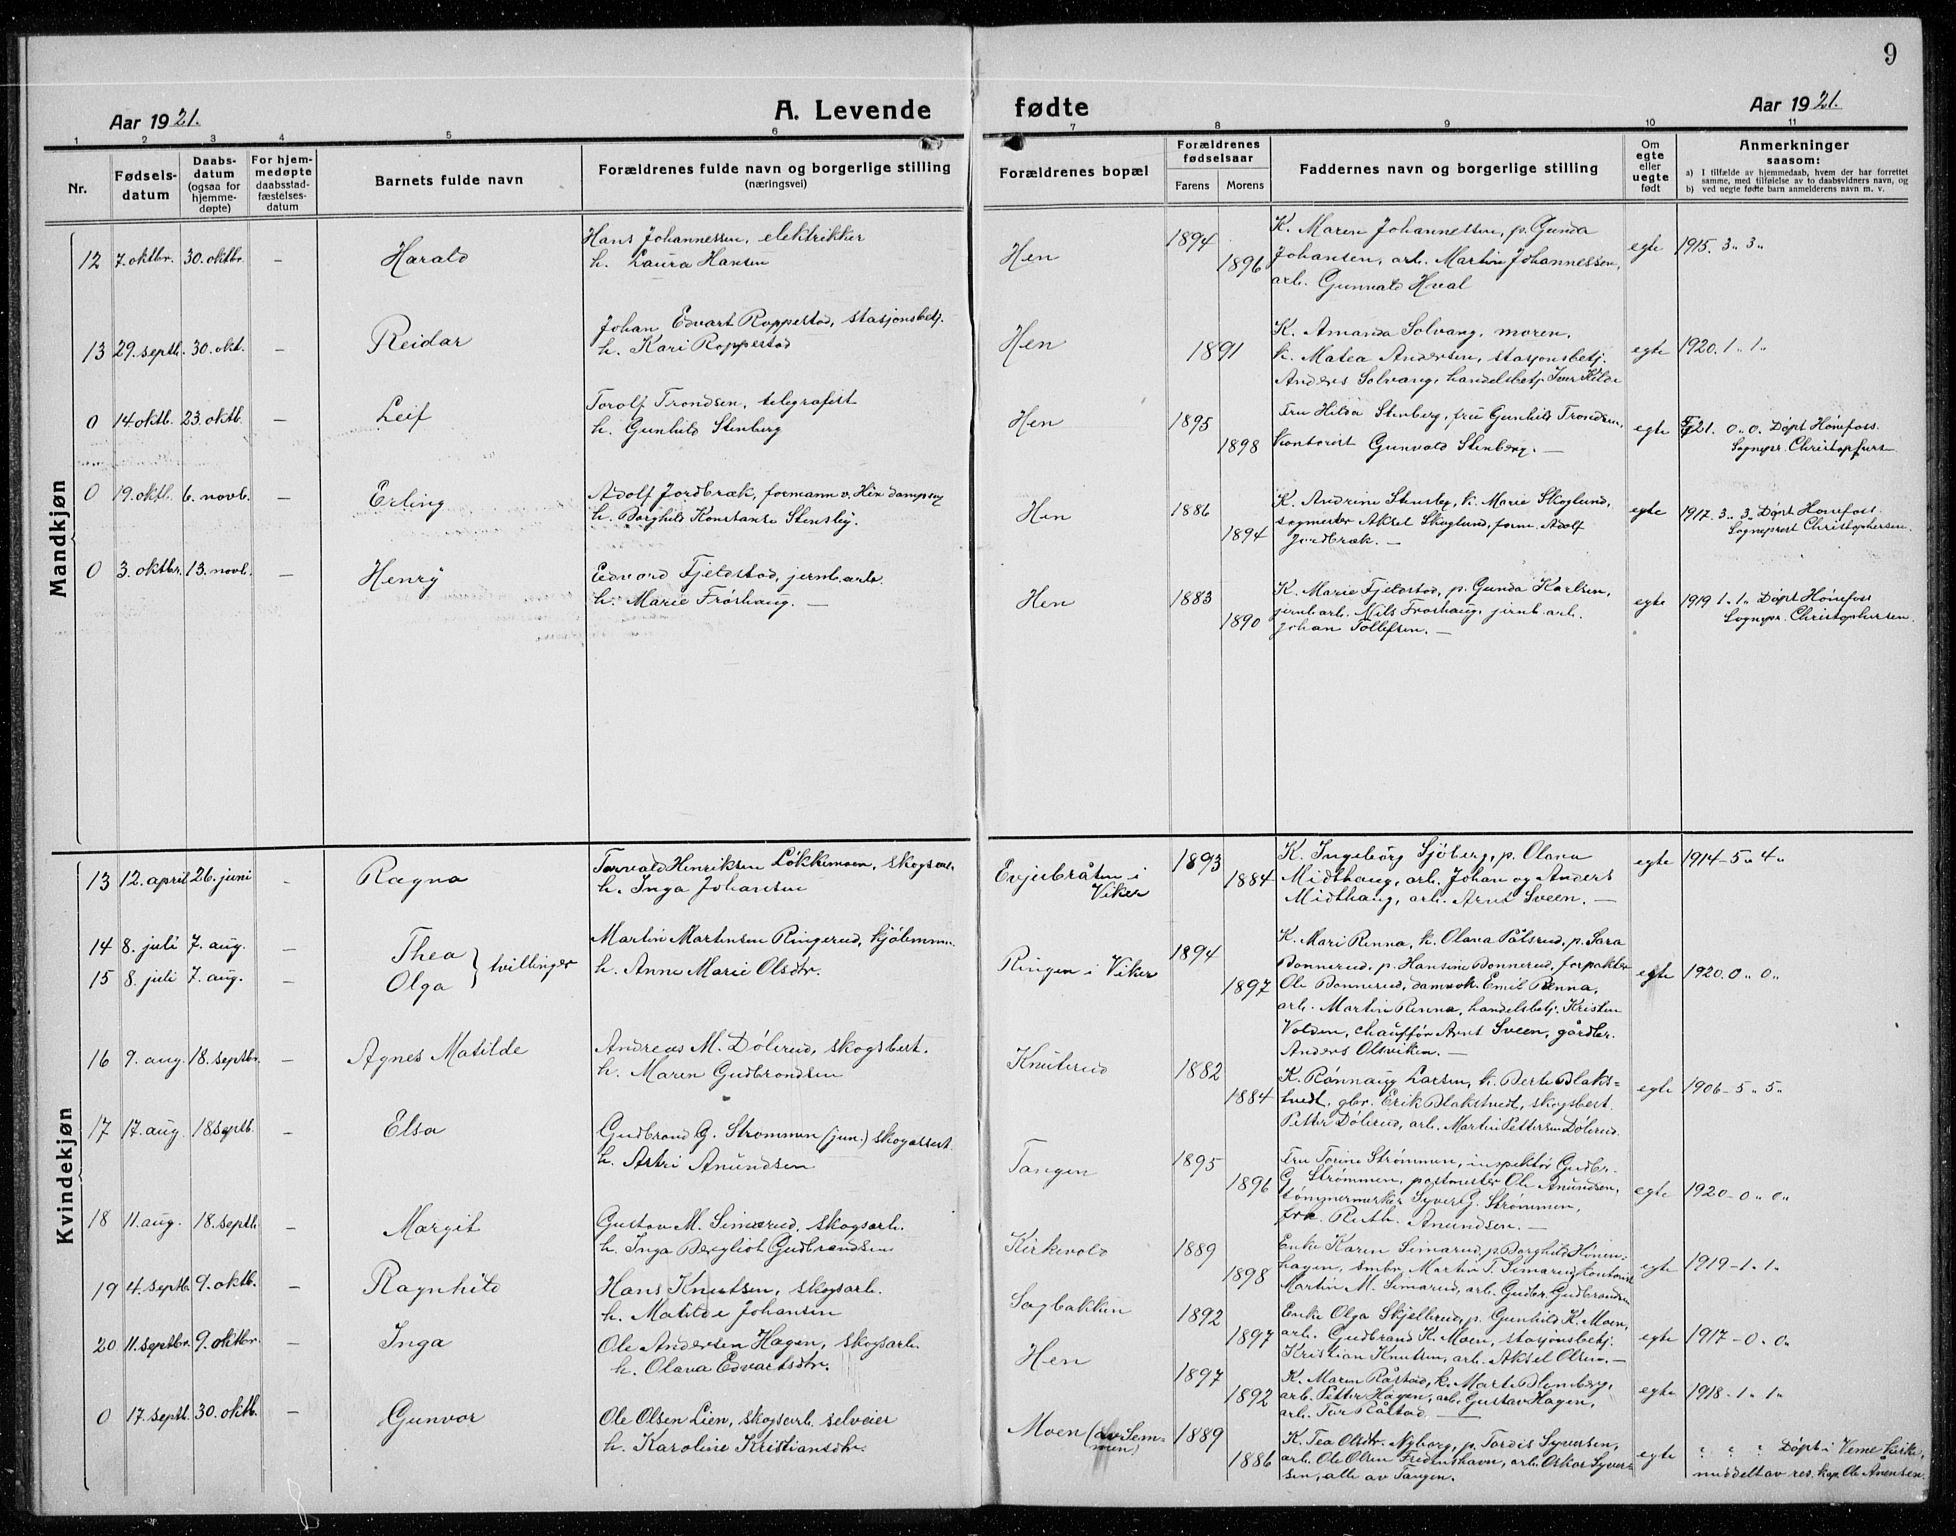 9
Aar 1921.
A. Levende
fødte
Aar 1921.
1 2 3 4 5 6 7 8 9 10 11
Nr.
Fødsels-
datum
Daabs-
datum
(ogsaa for
hjemme-
døpte)
For hjem-
medøpte
daabsstad-
fæstelses-
datum
Barnets fulde navn
Forældrenes fulde navn og borgerlige stilling
(næringsvei)
Forældrenes bopæl
Forældrenes
fødselsaar
Farens
Morens
Faddernes navn og borgerlige stilling
Om
egte
eller
uegte
født
Anmerkninger
saasom:
a) I tilfælde av hjemmedaab, hvem der har forrettet
samme, med tilføielse av to daabsvidners navn, og
b) ved uegte fødte barn anmelderens navn m. v.
Mandkjøn
12 7. oktbr. 30. oktbr. – Harald
Hans Johannessen, elektrikker
h. Laura Hansen
Hen
1894
1896
K. Maren Johannessen, p. Gunda
Johansen, arb. Martin Johannessen,
arb. Gunvald Hval
egte 1915. 3 „ 3 „
13 29. septb. 30. okt. – Reidar
Johan Edvart Roppestad, stasjonsbetj.
h. Kari Roppestad
Hen
1891
K. Amanda Solvang, moren,
k. Matea Andersen, stasjonsbetj.
Anders Solvang, handelsbetj. Iver Kilde
egte 1920. 1 „ 1 „
0 14 oktb. 23. oktb. – Leif
Torolf Trondsen, telegrafist
h. Gunhild Stenberg
Hen
1895
1898
Fru Hilda Stenberg, fru Gunhild Trondsen,
Kontorist Gunvald Stenberg. –
egte 21. 0 „ 0. Døpt Hønefoss.
Sognepr. Christophersen
0 19. oktb. 6. novb. – Erling
Adolf Jordbræk, formann v. Hen dampsag
h. Borghild Konstanse Stensby.
Hen
1886
1894
K. Andrine Stensby, k. Marie Skoglund,
sagmester Aksel Skoglund, form. Adolf
Jordbræk. –
egte 1917. 3 „ 3 „ Døpt Hønefoss.
Sogneprest Christophersen.
0 3. oktbr. 13. novb. – Henry
Edvard Fjeldstad, jernb.arb.
h. Marie Frøshaug. –
Hen
1883
1890
K. Marie Fjeldstad, p. Gunda Karlsen,
jernb.arb. Nils Frøshaug, jernb.arb.
Johan Tollefsen. –
egte 1919 1 „ 1 „ Døpt Hønefoss
Sognepr. Christophersen.
Kvindekjøn
13 12. april 26. juni – Ragna
Torvald Henriksen Løkkemoen, skogsarb.
h. Inga Johansen
Evjubråten i
Viker
1893
1884
K. Ingeborg Sjøberg, p. Olava
Midthaug, arb. Johan og Anders
Midthaug, arb. Arnt Sveen. –
egte 1914 – 5 „ 4 „
14 8. juli 7. aug. – Thea
15 8. juli 7. aug. Olga } tvillinger
Martin Martinsen Ringerud,
h. Anne Marie Olsdtr.
Ringen i Viker
1894
1897
K. Mari Renna, k. Olava Pålsrud, p. Sara
Bonnerud, p. Hansine Bonnerud, forpakter
Ole Bonnerud, damvok. Emil Renna,
arb. Martin Renna, handelsbetj. Kristen
Volden, chauffør Arnt Sveen, gårdbr.
Anders Olsviken. –
egte 1920. 0 „ 0 „
16 9. aug. 18. septbr. – Agnes Matilde
Andreas M. Dølerud, skogsbest.
h. Maren Gudbrandsen
Knuterud
1882
1884
K. Rønnaug Larsen, k. Berte Blaks-
tvedt, gbr. Erik Blakstvedt, skogsbest.
Petter Dølerud, arb. Martin Pettersen Dølerud.
egte 1906 – 5 „ 5 „
17 17. aug. 18 septb. – Elsa
Gudbrand G. Strømmen (jun.) skogassist.
h. Astri Anundsen
Tangen
1895
1896
Fru Torine Strømmen, inspektør Gudbr.
G. Strømmen, postmester Ole Anundsen,
tømmermerker Syver G. Strømmen,
frk. Ruth Anundsen. –
egte 1920 – 0 „ 0 „
18 11. aug. 18. septb. – Margit
Gustav M. Simarud, skogsarb.
h. Inga Bergliot Gudbrandsen
Kirkevold
1889
1898
Enke Karen Simarud, p. Borghild Hønen-
hagen, smbr. Martin T. Simarud, kontorist
Martin M. Simarud, arb. Gudbr. Gudbrandsen
egte 1919 – 1 „ 1 „
19 4. septb. 9. oktb. – Ragnhild
Hans Knutsen, skogsarb.
h. Matilde Johansen
Sagbakken
1892
1897
Enke Olga Skjellerud, p. Gunhild K. Moen,
arb. Gudbrand K. Moen, stasjonsbetj.
Kristian Knutsen, arb. Aksel Olsen. –
egte 1917 – 0 „ 0 „
20 11. septbr. 9. oktbr. – Inga
Ole Andersen Hagen, skogsarb.
h. Olava Edvartsdtr.
Hen
1897
1892
K. Maren Råstad, k. Marte Blomberg,
arb. Petter Hagen, arb. Gustav Hagen,
arb. Tor Råstad. –
egte 1918 – 1 „ 1 „
0 17. septb. 30. oktb. – Gunvor
Ole Olsen Lien, skogsarb. selveier
h. Karoline Kristiansdtr.
Moen (av Sem-
men)
1889
1886
K. Tea Olsdtr. Nyborg, p. Tordis Syversen,
arb. Ole Olsen Fredenshavn, arb. Oskar Syver-
sen, alle av Tangen.
egte ? ? ? Døpt i Veme kirke,
meddelt av res. kap. Ole Anensen.